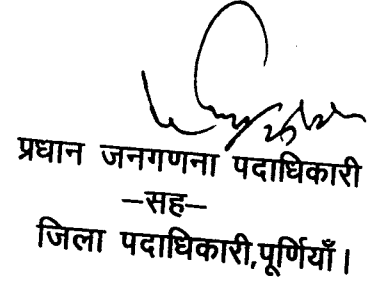 प्रधान जनगणना पदाधिकारी
–सह–
जिला पदाधिकारी,पूर्णियाँ।